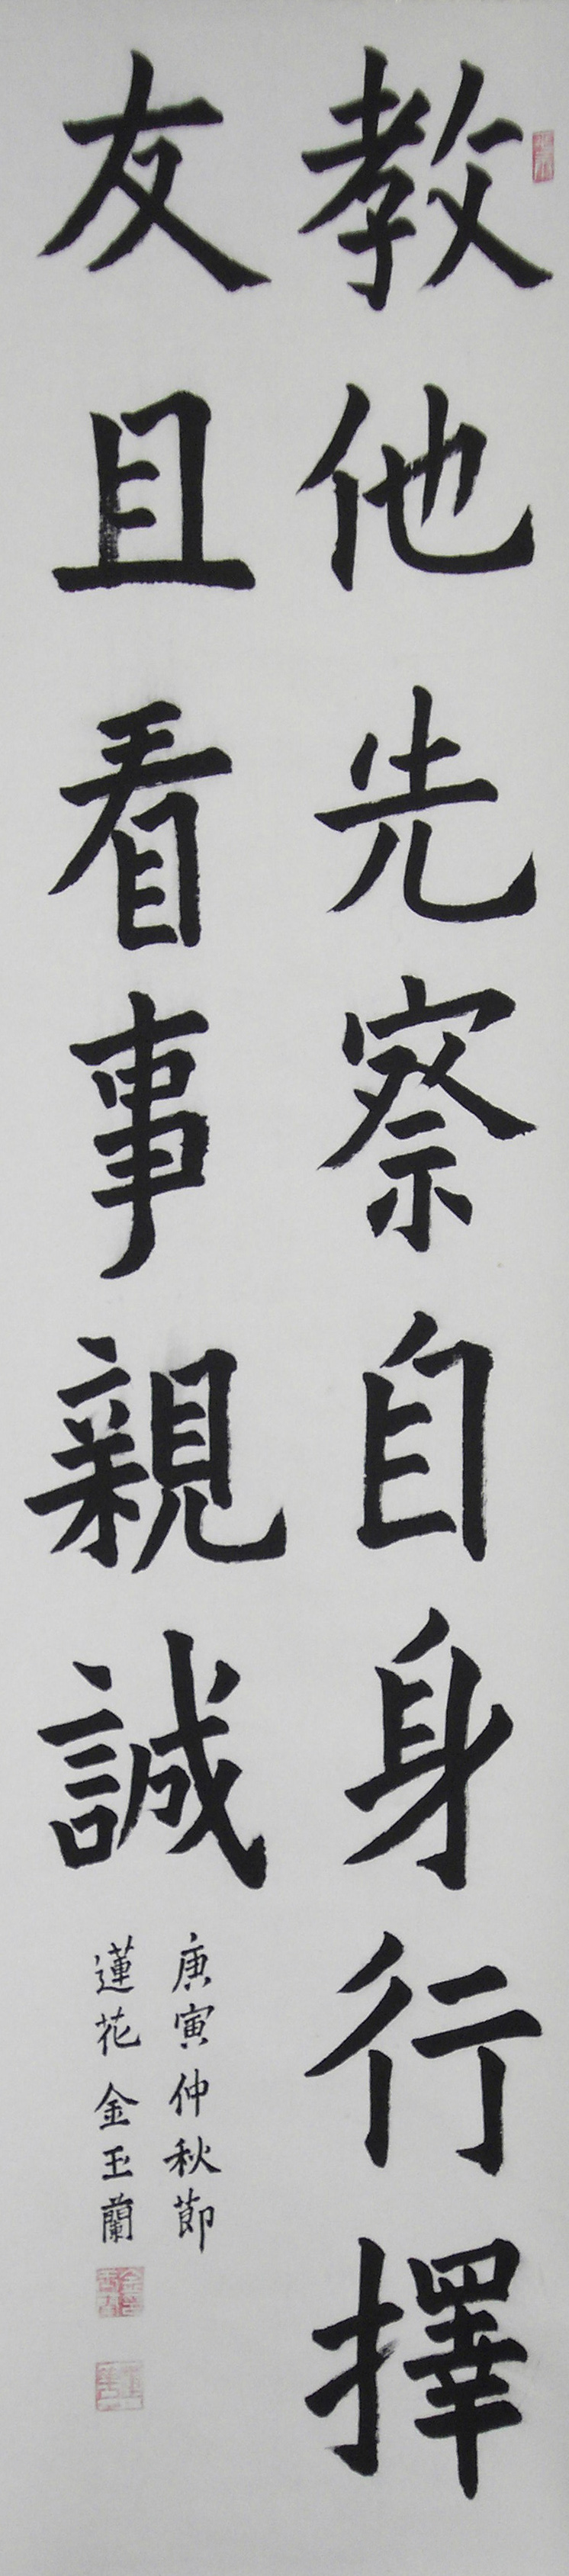 教他先察自身行擇
友且看事親誠
庚寅仲秋節
蓮花金玉蘭